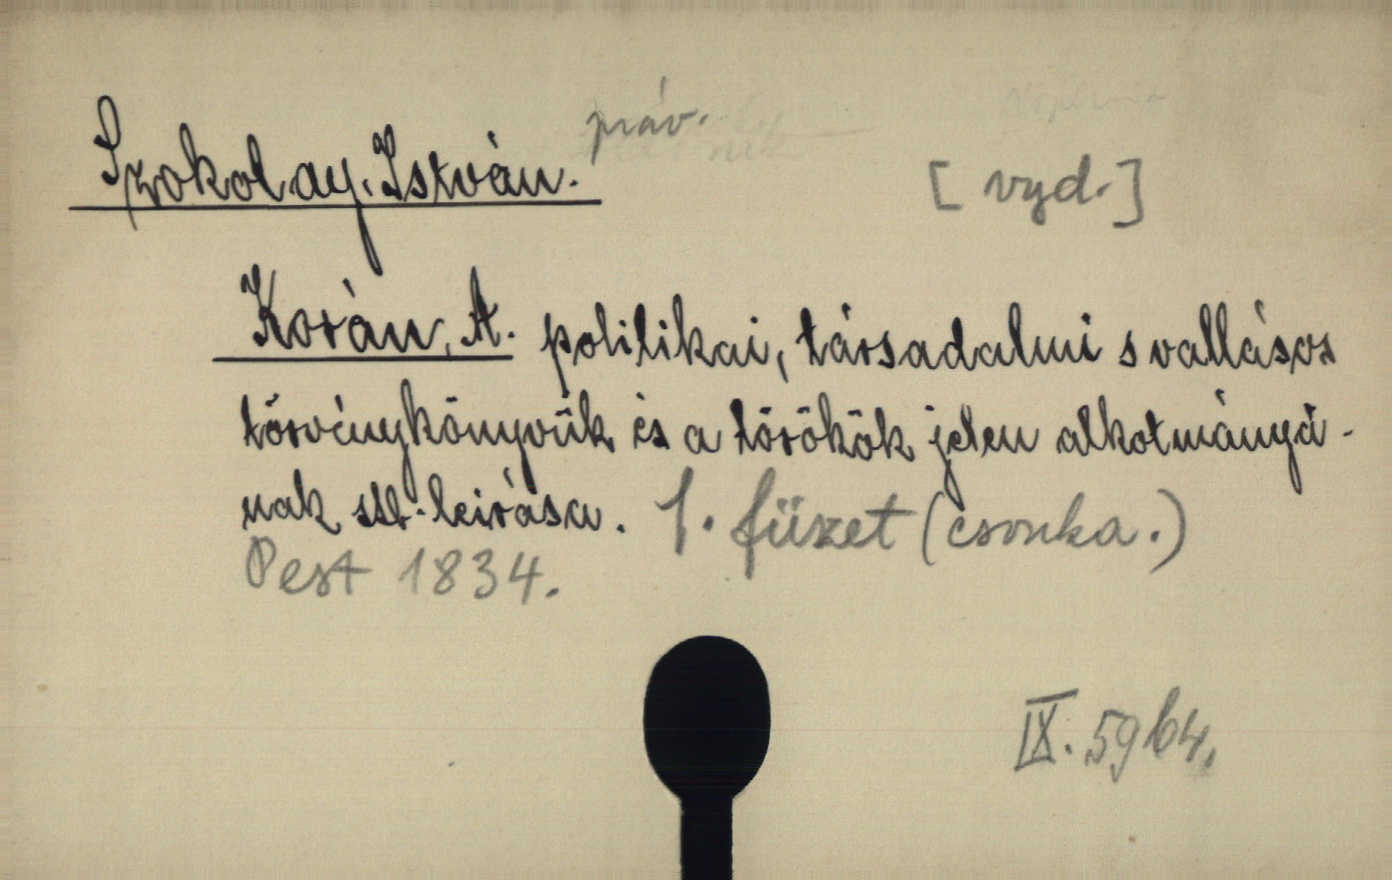 Szokolay, István. práv.
[vyd.]
Korán, A. politikai, társadalmi s vallásos
törvénykönyvük és a törökök jelen alkotmányá-
nak stb. leirása. 1. füzet (csonka.)
Pest 1834.
IX. 5964.